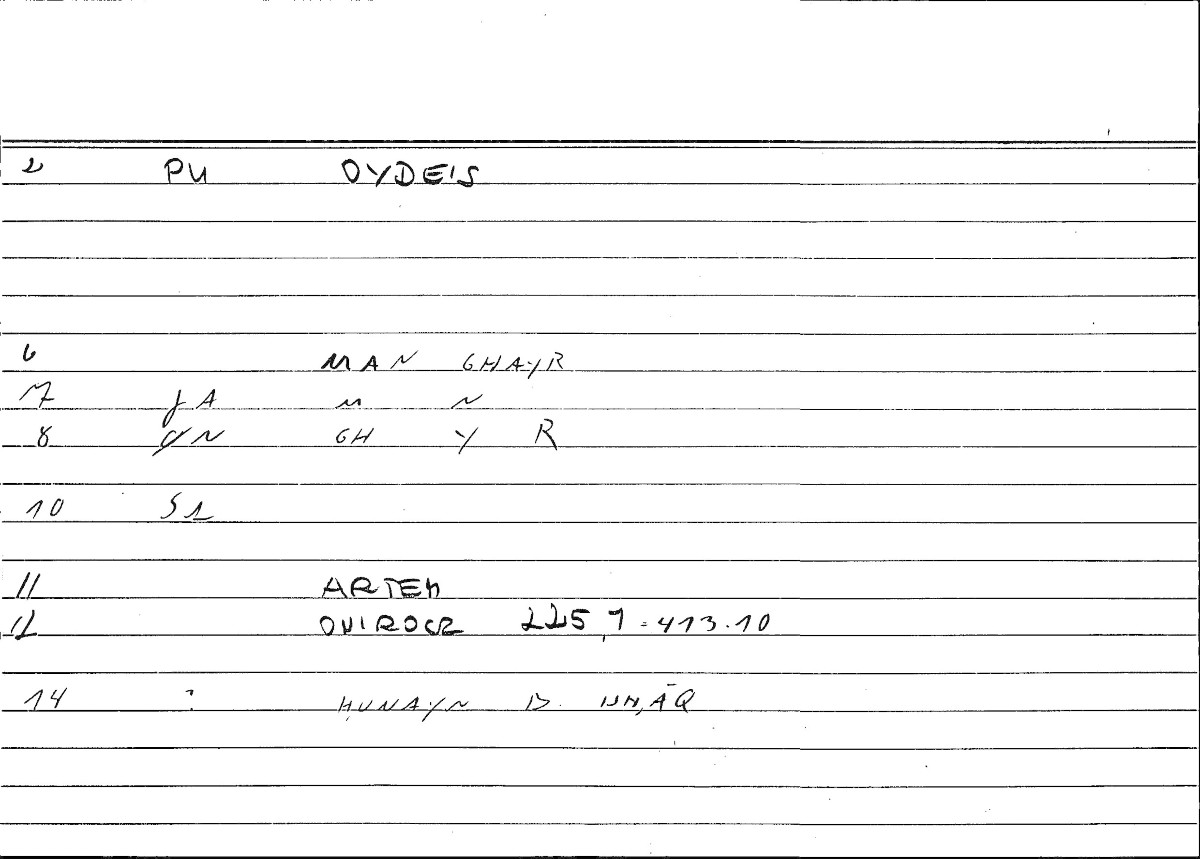 2 PU OYDEIS
6 MAN GHAYR
7 JA M N
8 QN GH Y R
10 S1
11 ARTEM
12 ONIROCR 225,7=413.10
14 ? ḤUNAYN B. ISḤĀQ